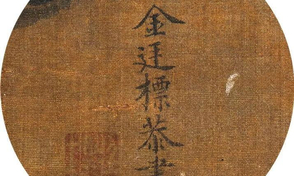 金廷標恭畫